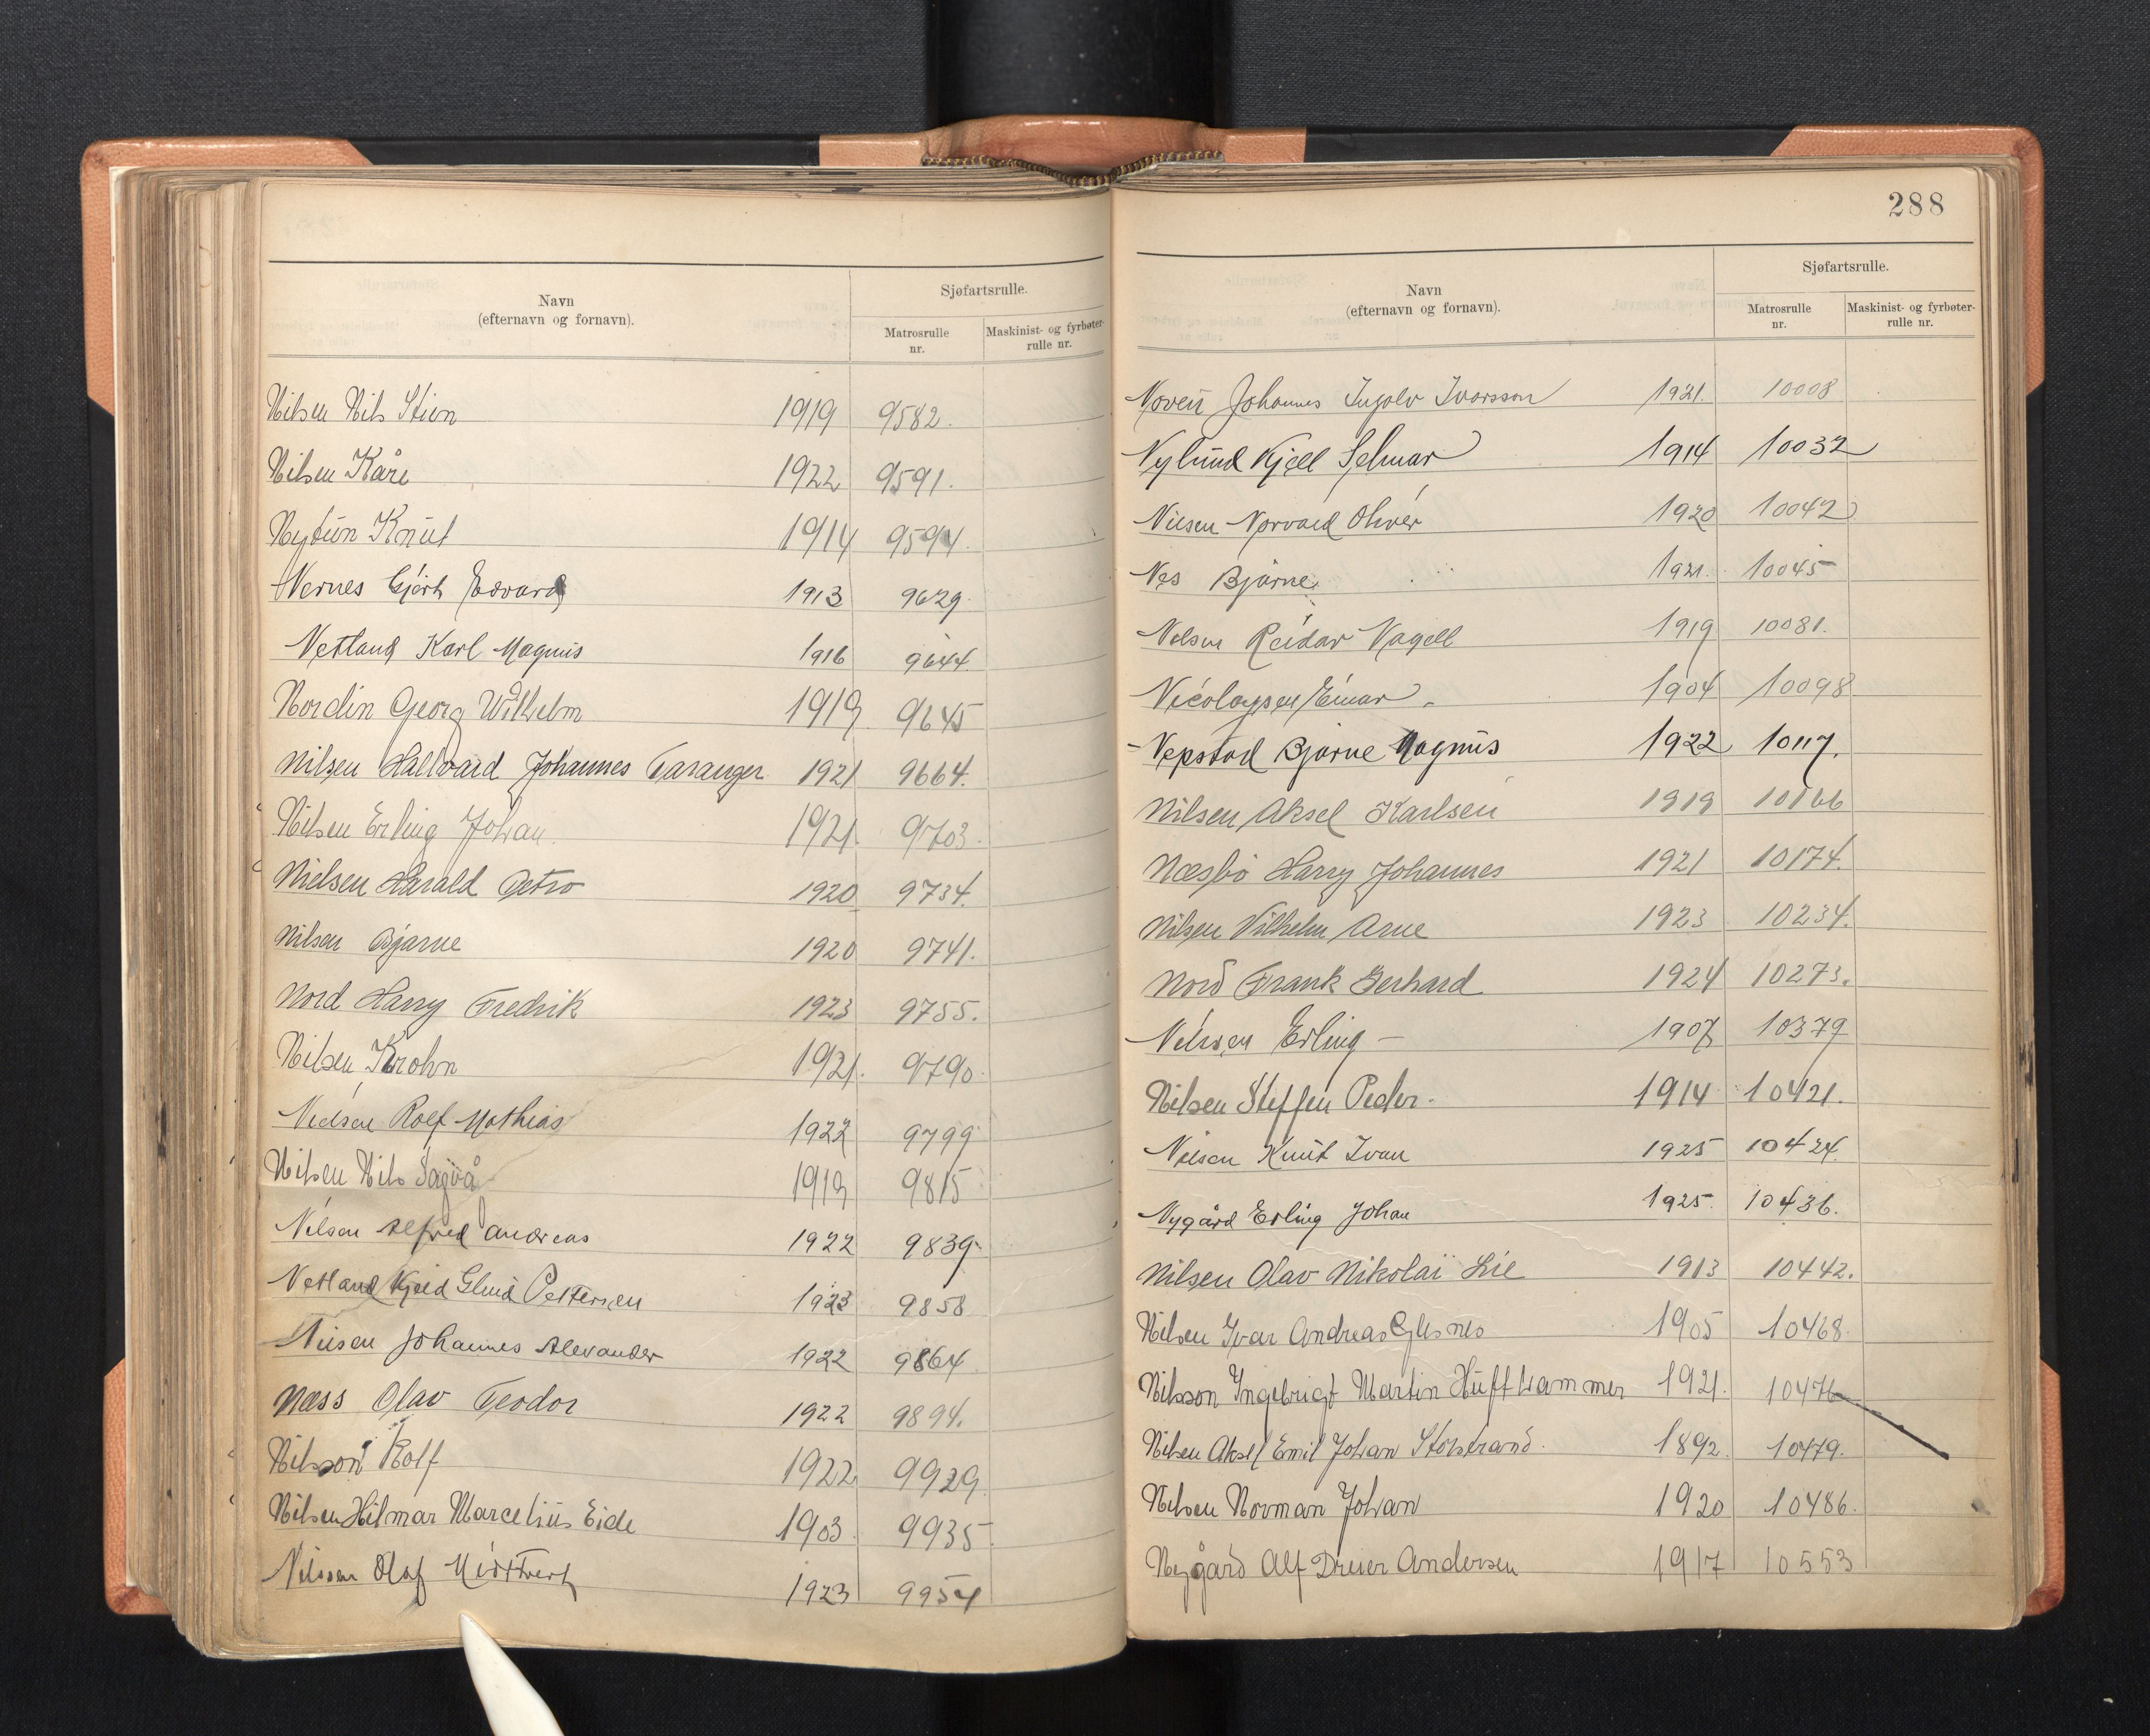 Navn
(efternavn og fornavn).
Sjøfartsrulle.
Matrosrulle
nr.
Maskinist- og fyrbøter-
rulle nr.
Nilsen Nils Stien 1919 9582.
Nilsen Kåre 1922 9591.
Nytun Knut 1914 9594.
Nernes Gjert Edvard 1913 9629.
Netland Karl Magnus 1916 9644
Nordin Georg Wilhelm 1919. 9645
Nilsen Hallvard Johannes Faranger 1921 9664.
Nilsen Erling Johan. 1921. 9703.
Nielsen Harald Petro 1920 9734.
Nilsen Bjarne 1920 9741.
Nord Harry Fredrik 1923 9755.
Nilsen Krohn 1921. 9790.
Nielsen Rolf Mathias 1922 9799
Nilsen Nils Sagvå 1919 9815
Nilsen Alfred Andreas 1922 9839
Netland Kjeld Pettersen 1923 9858
Nilsen Johannes Alexander 1922 9864
Næss Olav Teodor 1922 9894.
Nilsson Rolf 1922 9929
Nilsen Hilmar Marcelius Eide 1903. 9935
Nilssen Olaf 1923 9954
288
Navn
(efternavn og fornavn).
Sjøfartsrulle.
Matrosrulle
nr.
Maskinist- og fyrbøter-
rulle nr.
Johannes Ingolv Ivarsson 1921. 10008
Nylund Kjell Selmar 1914 10032
Nilsen Norvald Oliver 1920 10042
Nes Bjarne 1921. 10045
Nilsen Reidar Vagell 1919 10081.
Nicolaysen Einar 1904 10098
Nepstad Bjarne Magnus 1922 10117.
Nilsen Aksel Karlsen 1919 10166
Næsbø Harry Johannes 1921 10174.
Nilsen Vilhelm Arne 1923 10234.
Nord Frank Gerhard 1924 10273.
Nilssen Erling – 1907 10379
Nilsen Steffen Peder. 1914 10421.
Nilsen Knut Ivan 1925 10424.
Nygård Erling Johan 1925. 10436.
Nilsen Olav Nikolai Lie 1913 10442.
Nilsen Ivar Andreas Glesnes 1905 10468.
Nilsson Ingebrigt Martin Hufthammer 1921. 10476
Nilsen Aksel Emil Johan 1892. 10479.
Nilsen Norman Johan 1920 10486.
Nygård Alf Dreier Andersen 1917 10553